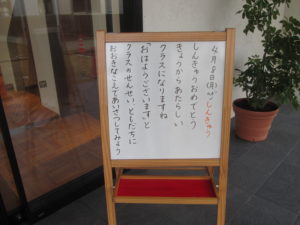 4月8日(月)
しんきゅう
しんきゅうおめでとう
きょうからあたらしい
クラスになりますね
おはようございます」と
クラスのせんせい ともだちに
おおきなこえであいさつしてみよう